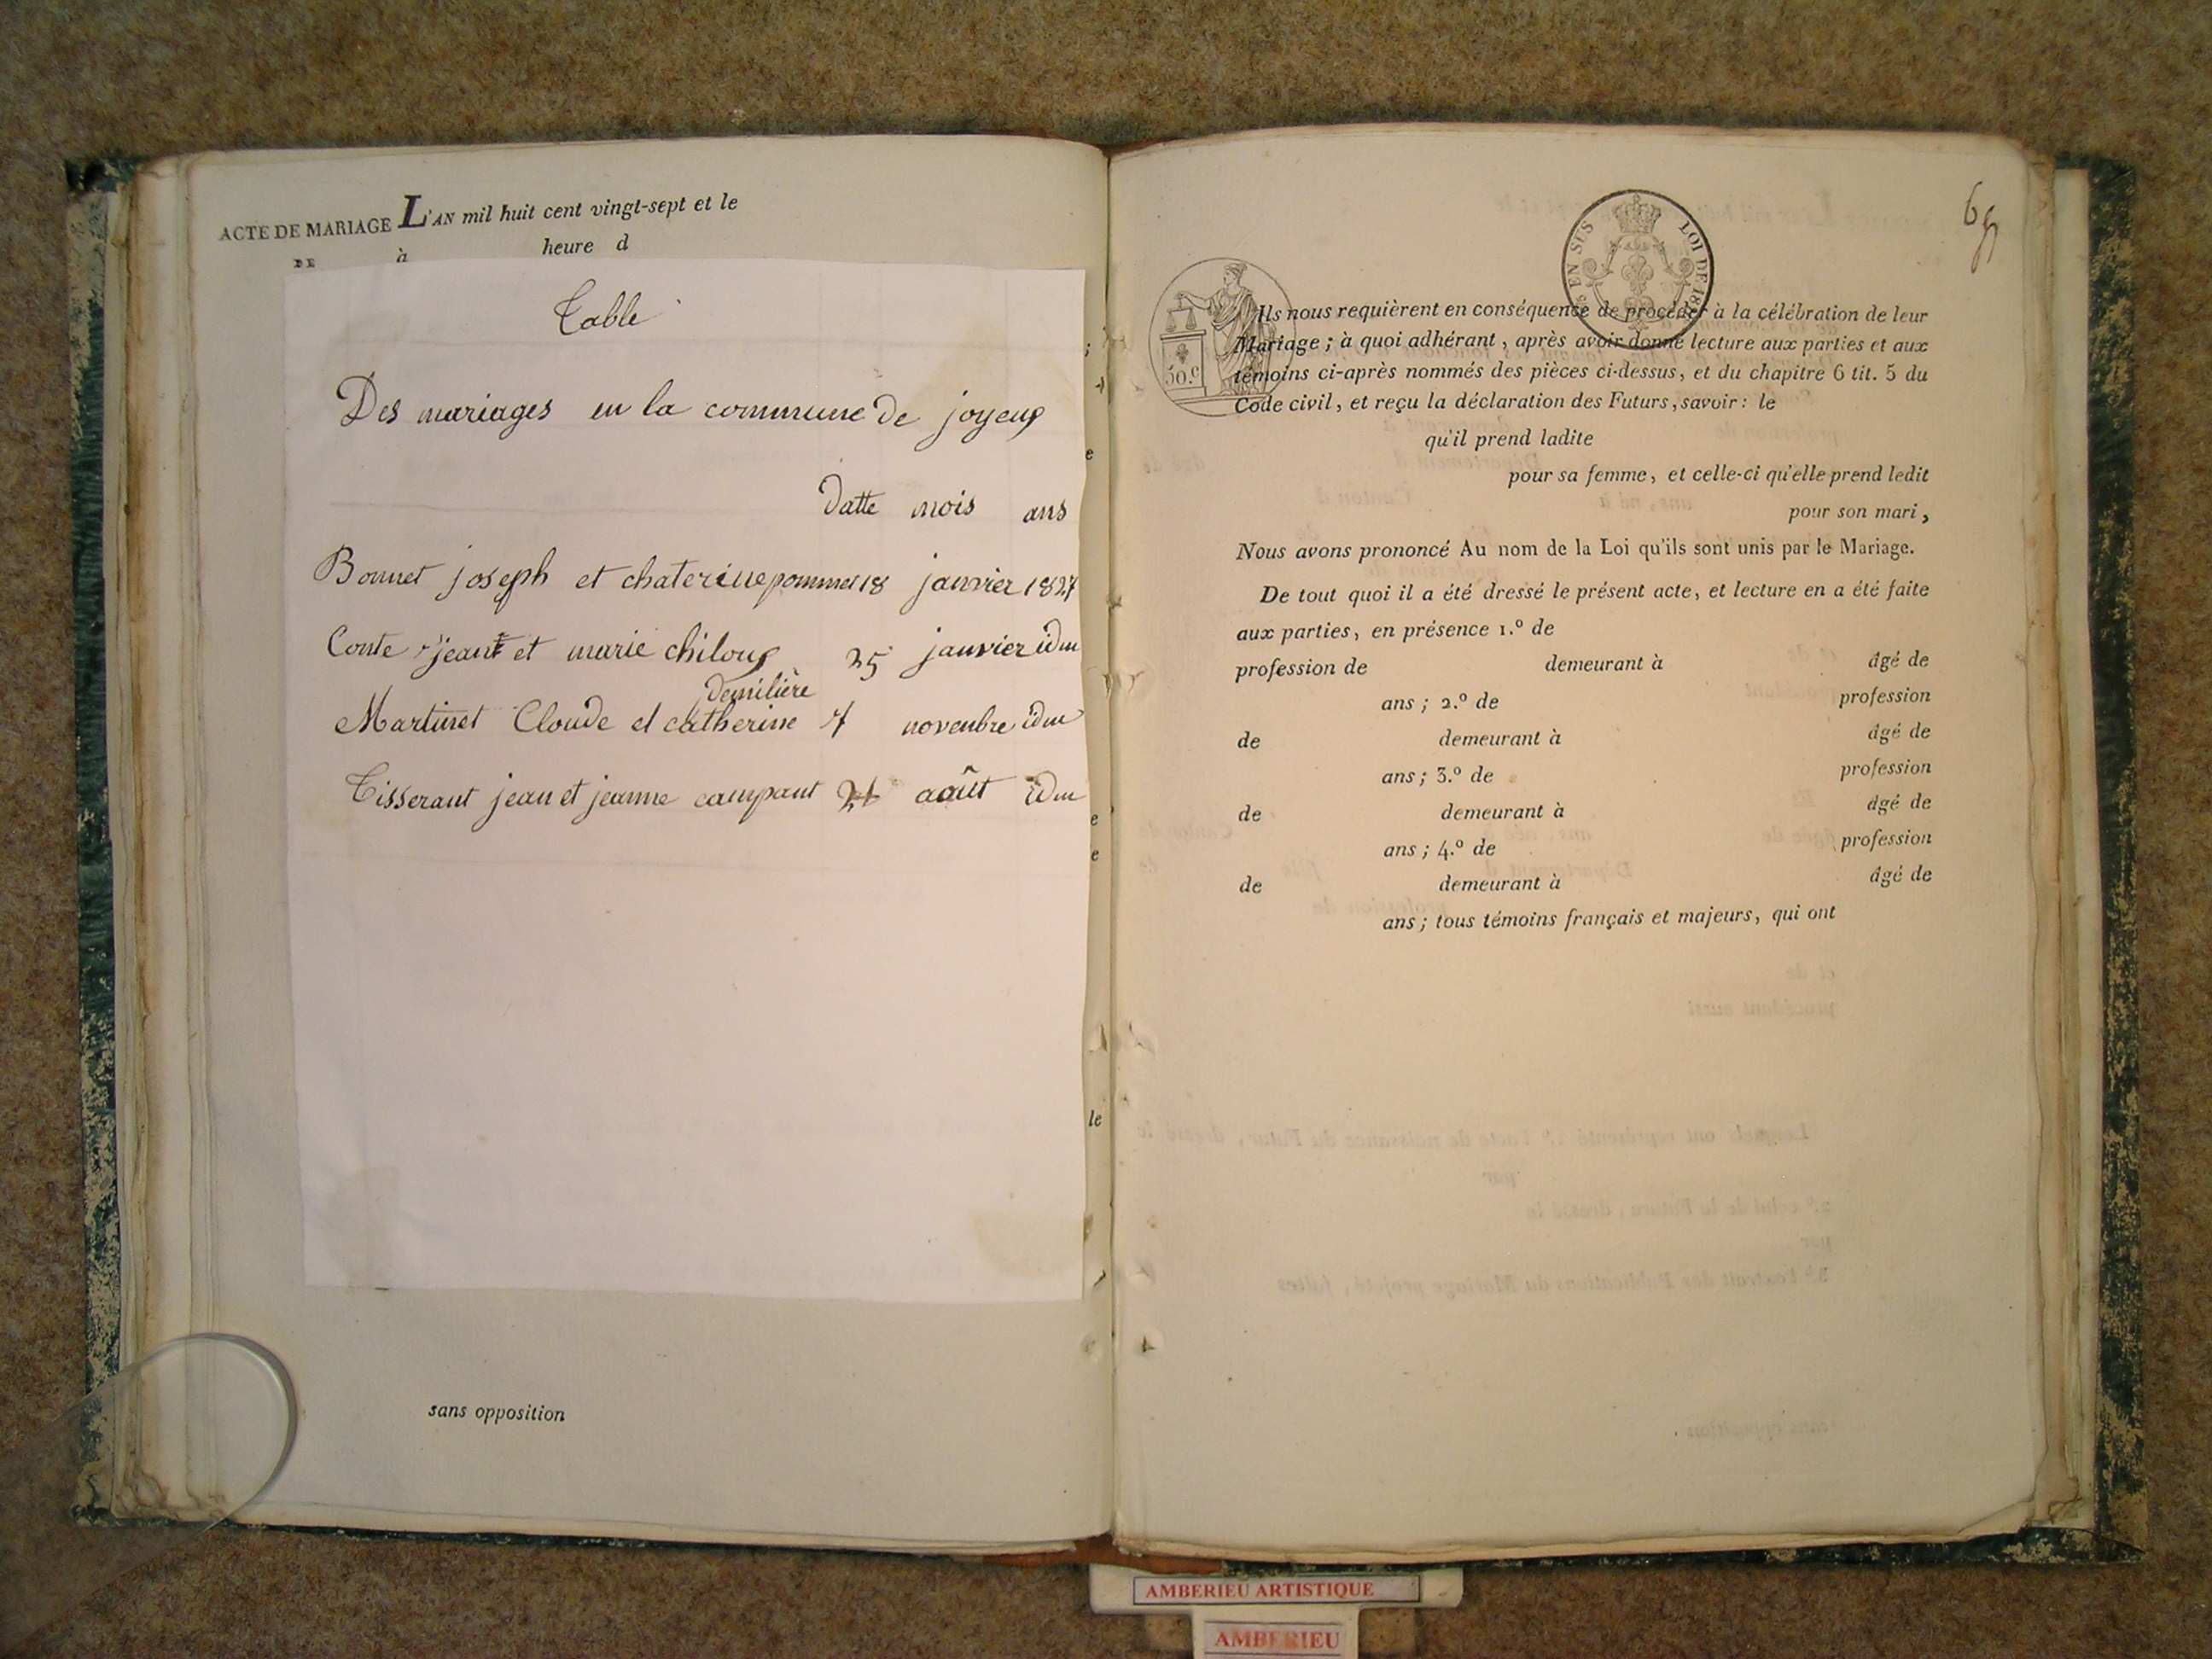 ACTE DE MARIAGE L'AN mil huit cent vingt-sept et le
DE à heure d
Table
Des mariages en la commune De joyeux
Datte mois ans
Bonnet joseph et chaterine pommet 18 janvier 1827
Conte jean et marie chiloux 25 janvier idm
demilière
Martinet Cloude et catherine 7 novenbre idm
Tisserant jean et jeanne campant 21 août idm
;
e
e
e
le
sans opposition
69
EN SUS LOI DE 18
50.c
Ils nous requièrent en conséquence de procéder à la célébration de leur
Mariage ; à quoi adhérant, après avoir donné lecture aux parties et aux
témoins ci-après nommés des pièces ci-dessus, et du chapitre 6 tit. 5 du
Code civil, et reçu la déclaration des Futurs, savoir : le
qu'il prend ladite
pour sa femme, et celle-ci qu'elle prend ledit
pour son mari,
Nous avons prononcé Au nom de la Loi qu'ils sont unis par le Mariage.
De tout quoi il a été dressé le présent acte, et lecture en a été faite
aux parties, en présence 1.º de
profession de demeurant à âgé de
ans ; 2.º de profession
de demeurant à âgé de
ans ; 3.º de profession
de demeurant à âgé de
ans ; 4.º de profession
de demeurant à âgé de
ans ; tous témoins français et majeurs, qui ont
AMBERIEU ARTISTIQUE
AMBERIEU